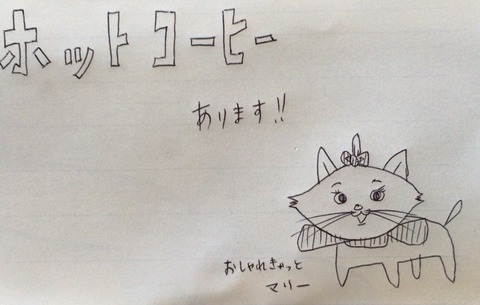 ホットコーヒー
あります!!
おしゃれきゃっと
マリー